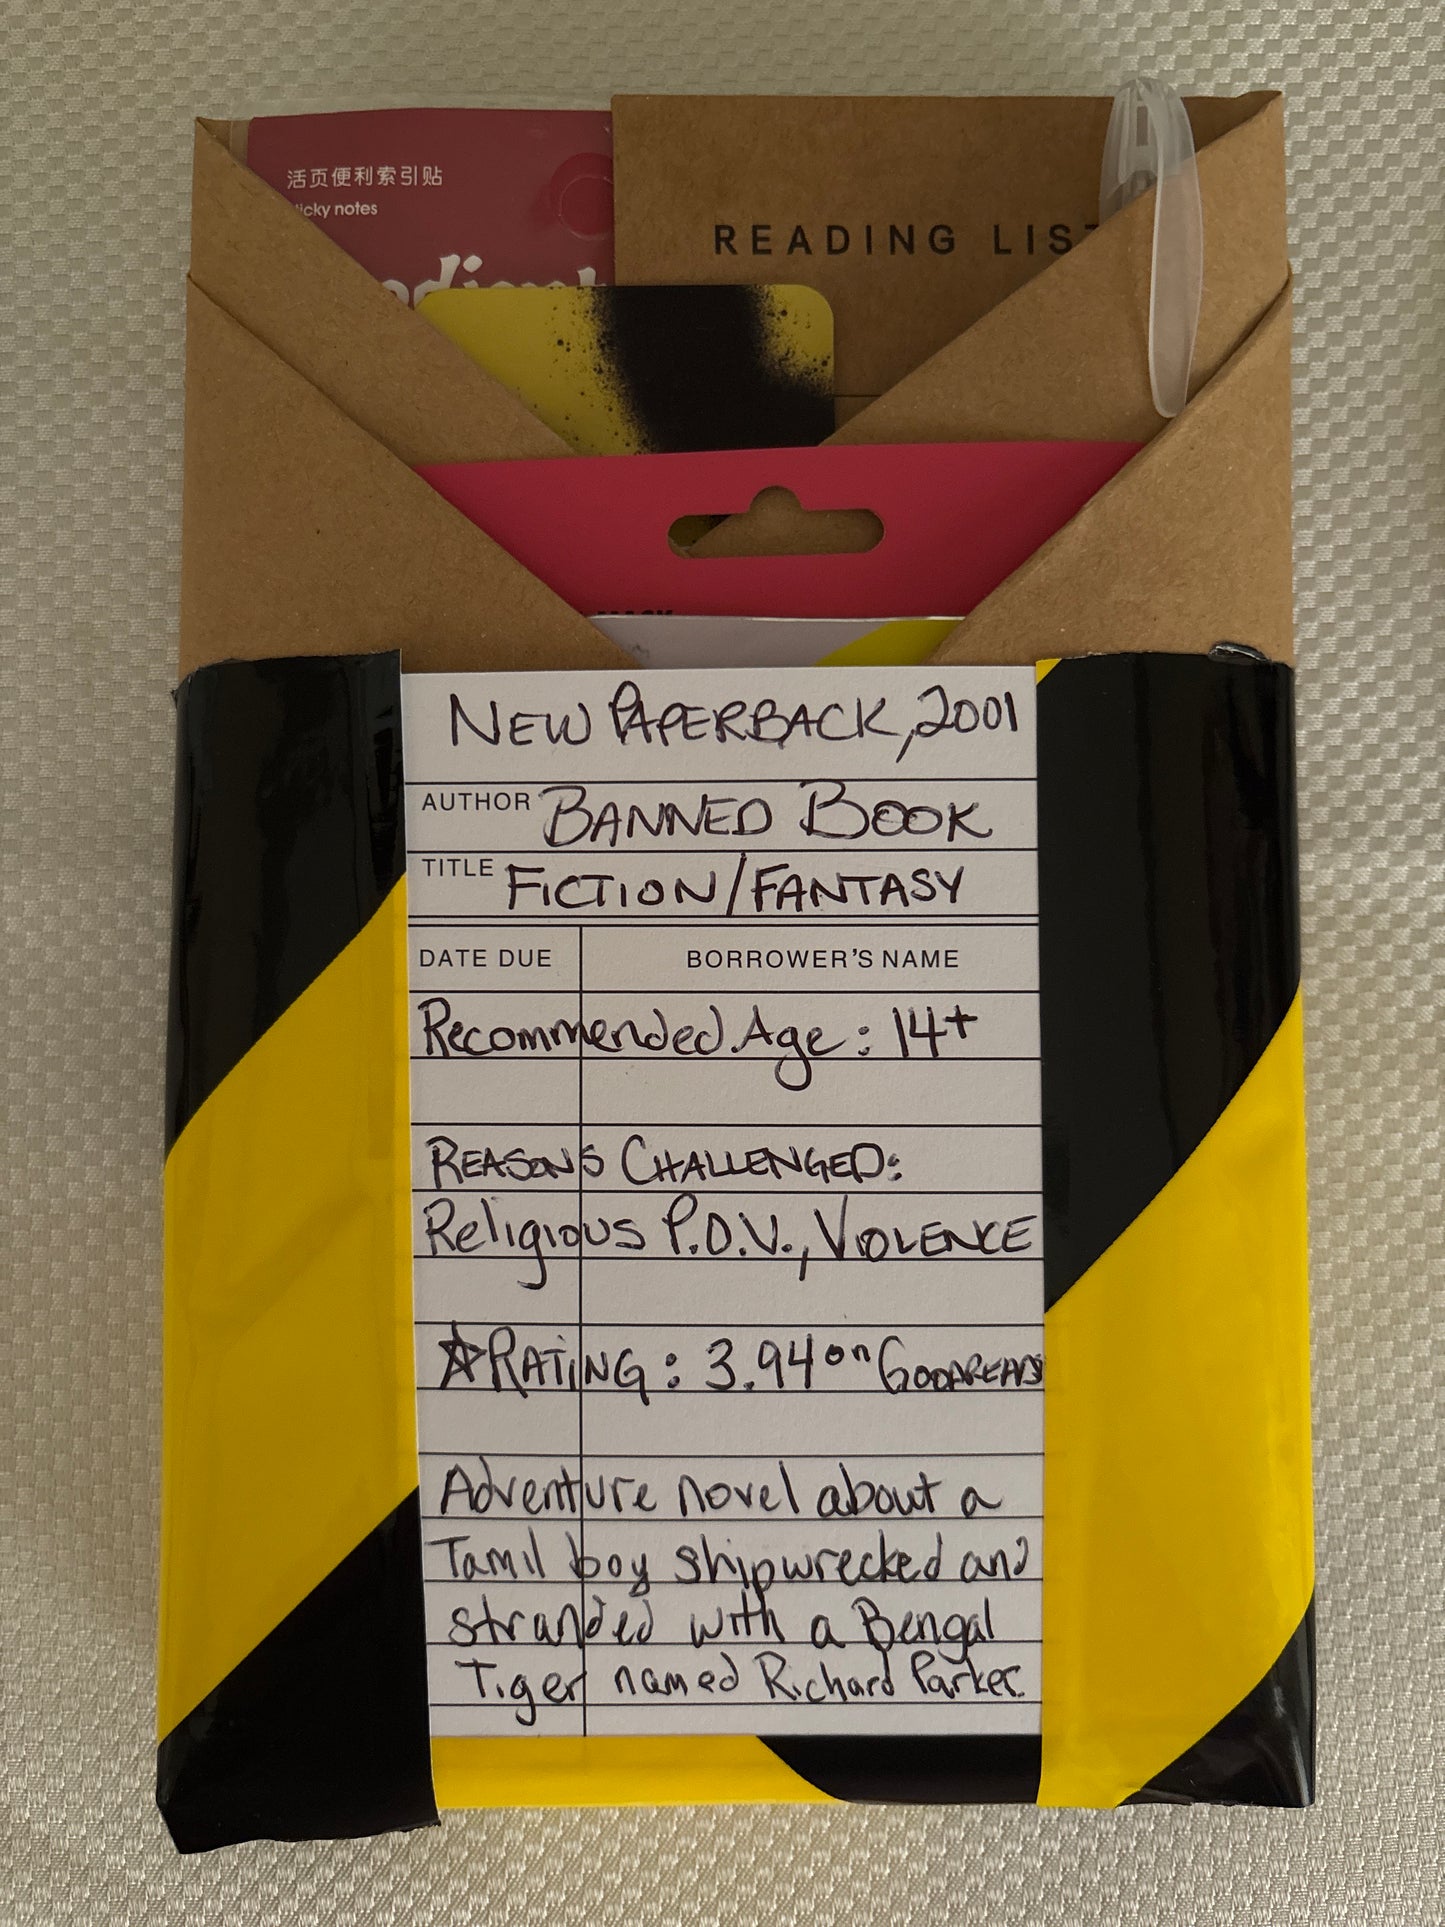 活页便利索引贴
icky notes
READING LIS
NEW PAPERBACK, 2001
AUTHOR BANNED BOOK
TITLE FICTION/FANTASY
DATE DUE BORROWER'S NAME
Recommended Age: 14+
REASONS CHALLENGED:
Religious P.O.V., VIOLENCE
☆RATING: 3.94 on GOODREADS
Adventure novel about a
Tamil boy shipwrecked and
stranded with a Bengal
Tiger named Richard Parker.